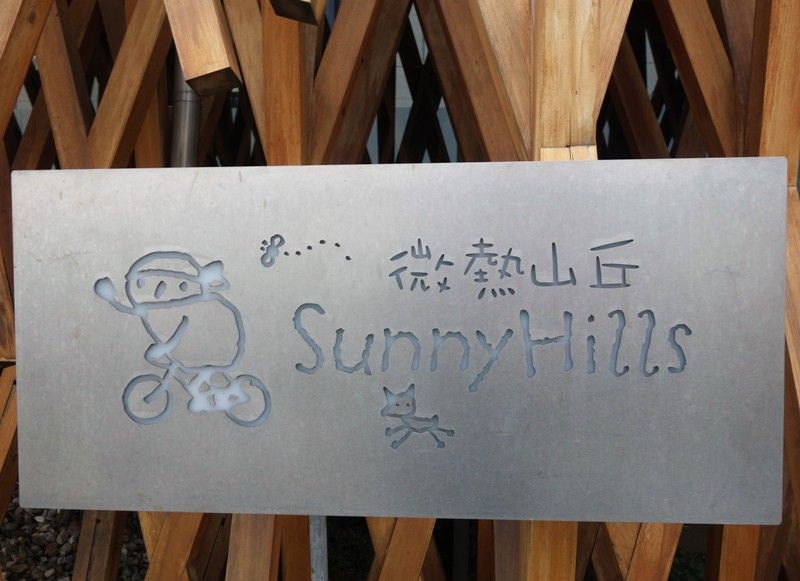 微熱山丘
SunnyHills